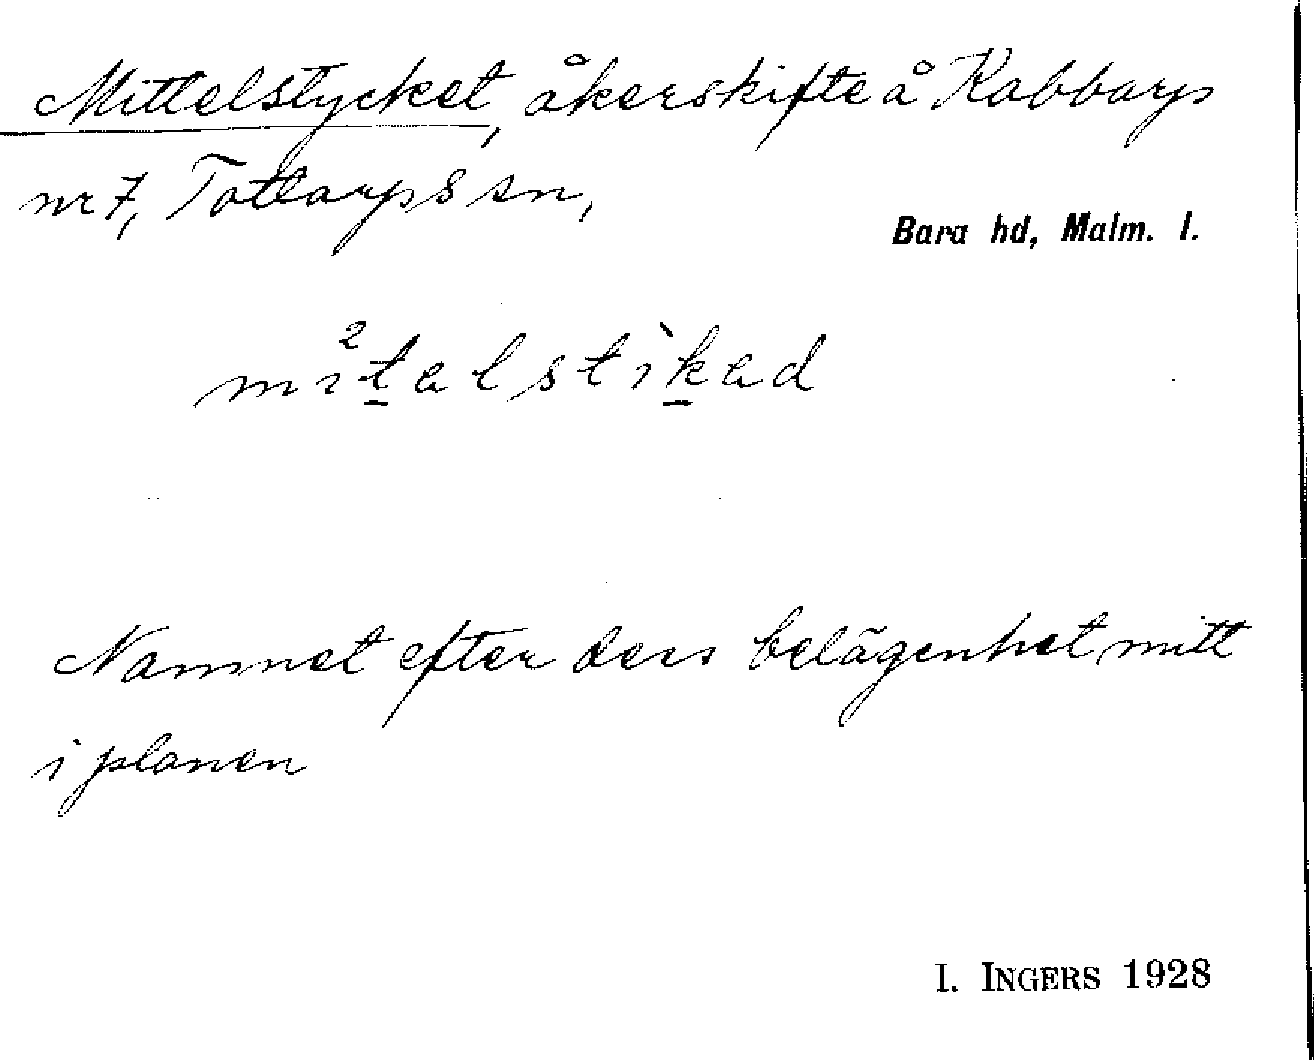 Mittelstycket, åkerskifte å Kabbarp
nr 7, Tottarps sn,
Bara hd, Malm. l.
mı²ta̱lstìkad
Namnet efter dess belägenhet mitt
i planen
I. INGERS 1928